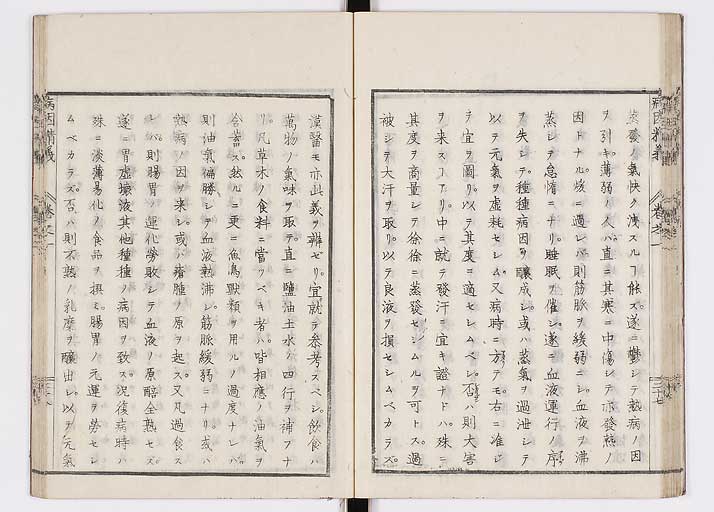 蒸發ノ氣快ク洩スルヿ能ズ。遂ニ鬱シテ熱病ノ因
ヲ引キ。薄弱ノ人ハ。直ニ其寒ニ中傷シテ亦發熱ノ
因トナル。炊ニ過レバ則筋脈ヲ緩弱ニシ。血液ヲ沸
蒸シテ怠惰ニナリ。睡眠ヲ催シ。遂ニ血液運行ノ序
ヲ失シテ。種種病因ヲ釀成シ。或ハ蒸氣ヲ過泄シテ
以テ元氣ヲ虚耗セシム。又病時ニ方テモ。右ニ准シ
テ宜ヲ圖リ。以テ其度ニ適セシムベシ。否ハ則大害
ヲ来スヿアリ。中ニ就テ發汗ニ宜キ證ナドハ。殊ニ
其度ヲ商量シテ徐徐ニ蒸發セシムルヲ可トス。過
被シテ大汗ヲ取リ。以テ良液ヲ損セシムベカラズ。
病因精義
卷之一
三十七
漢醫モ亦此義ヲ辨ゼリ。宜就テ參考スベシ。飲食ハ
萬物ノ氣味ヲ取テ。直ニ鹽油土水ノ四行ヲ補フナ
リ。凡草木ノ食料ニ當ツベキ者ハ。皆相應ノ油氣ヲ
含蓄ス。然ルニ更ニ魚鳥獸類ヲ用ルノ過度ナレバ。
則油氣偏勝シテ血液熱沸シ。筋脈緩弱ニナリ。或ハ
熱病ノ因ヲ来シ。或ハ瘡腫ノ原ヲ起ス。又凡過食ス
レバ。則腸胃ノ運化勞敗シテ血液ノ原醅全熟セズ。
遂ニ胃虚壞液其他種種ノ病因ヲ致ス。況復病時ハ
殊ニ淡薄易化ノ食品ヲ撰ミ。腸胃ノ元運ヲ勞セシ
ムベカラズ。否ハ則不熟ノ乳糜ヲ釀出シ。以テ元氣
病因精義
卷之一